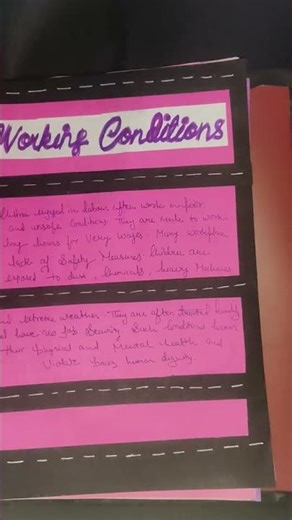 Working Conditions
engaged in labour often work in poor
and unsafe conditions They are made to work
long hours for very wages. Many workplace
lack of Safety Measures Children are
exposed to dust, chemicals, heavy Machines
and extreme weather. They are often treated
have no job Security Such conditions harm
their physical and Mental health and
Violate basic human dignity.